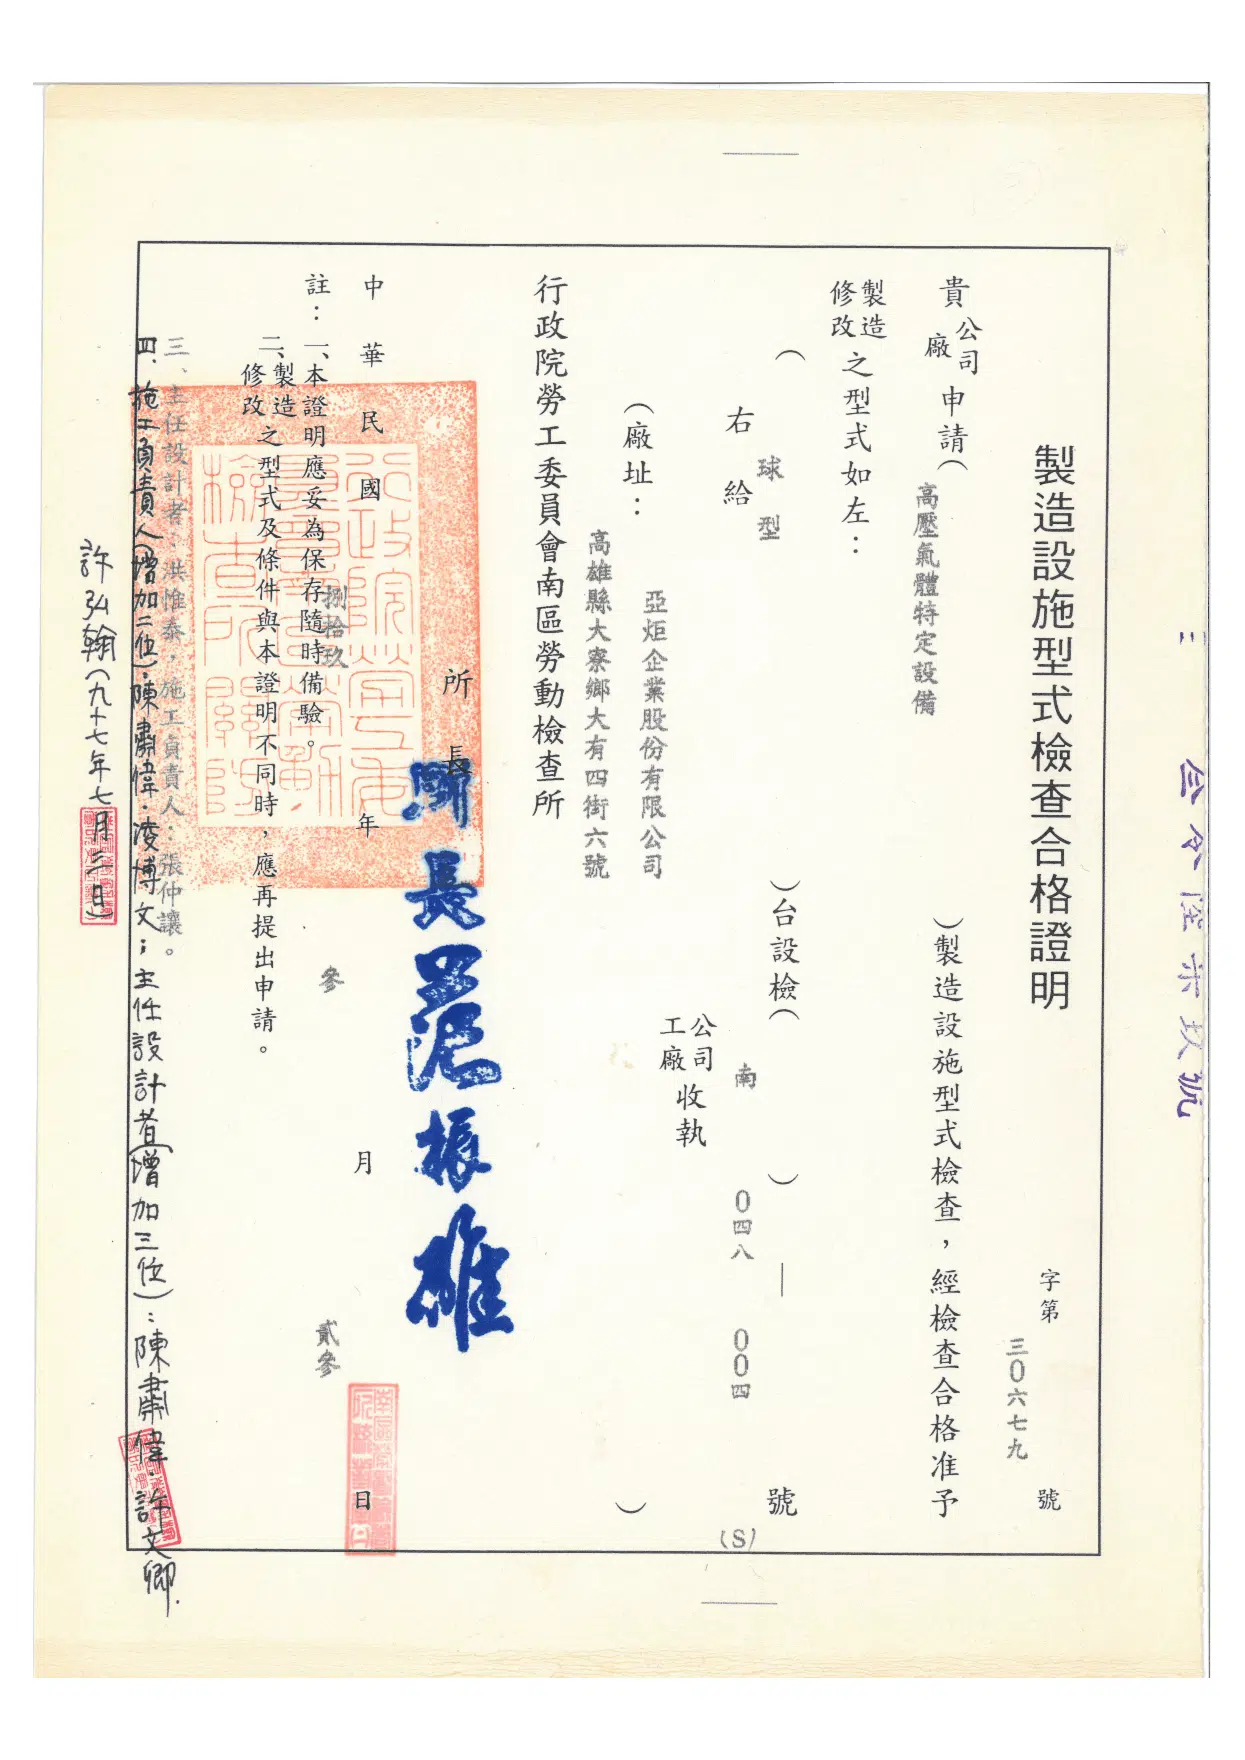 製造設施型式檢查合格證明
字第 三0六七九 號
貴公司廠 申請(高壓氣體特定設備)製造設施型式檢查，經檢查合格准予
製造修改之型式如左：
(球型)台設檢(南)—0四八00四號(S)
右給
亞炬企業股份有限公司 公司工廠收執
(廠址：高雄縣大寮鄉大有四街六號)
行政院勞工委員會南區勞動檢查所
所長
所長 羅 振雄
中華民國捌拾玖年參月貳參日
註：一、本證明應妥為保存隨時備驗。
二、製造修改之型式及條件與本證明不同時，應再提出申請。
三、主任設計者：洪惟泰，施工負責人：張仲讓。
四、施工負責人(增加二位)：陳肅偉．凌博文；主任設計者(增加三位)：陳肅偉．許文卿．
許弘翰(九十七年七月三日)